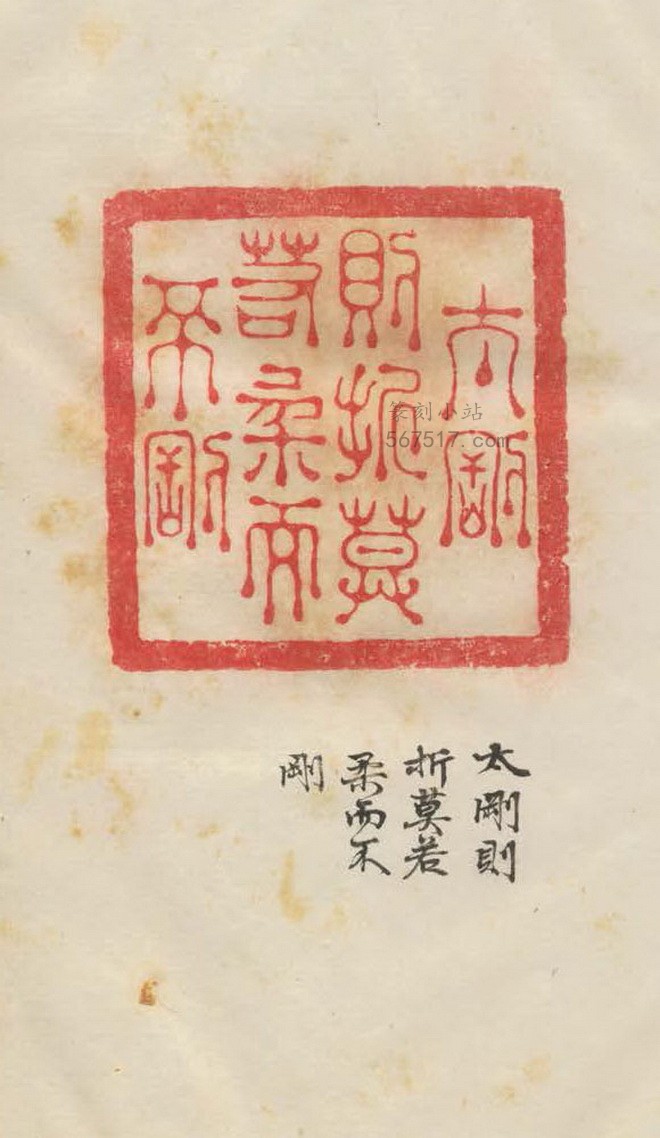 太剛
則折莫
若柔而
不剛
篆刻小站
567517.com
太剛則
折莫若
柔而不
剛